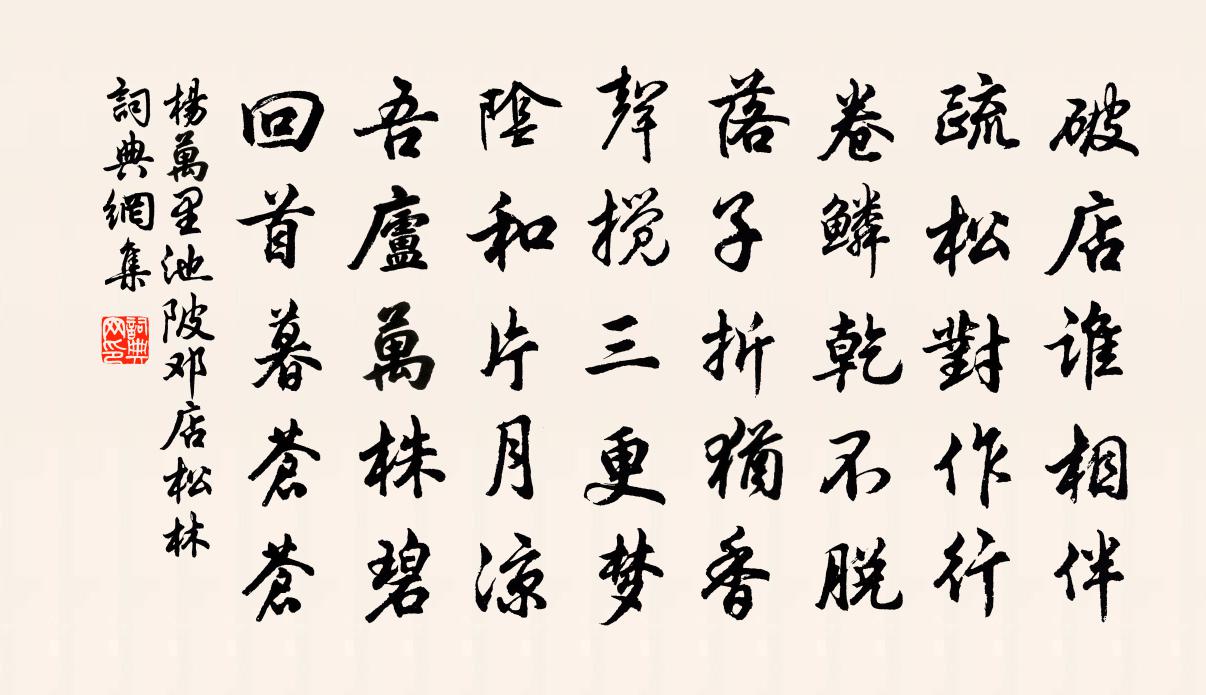 破店谁相伴
疏松對作行
卷鳞乾不脱
落子折猶香
聲搅三更梦
陰和片月凉
吾廬萬株碧
回首暮蒼蒼
楊萬里池陂邓店松林
詞典網集
詞典网印